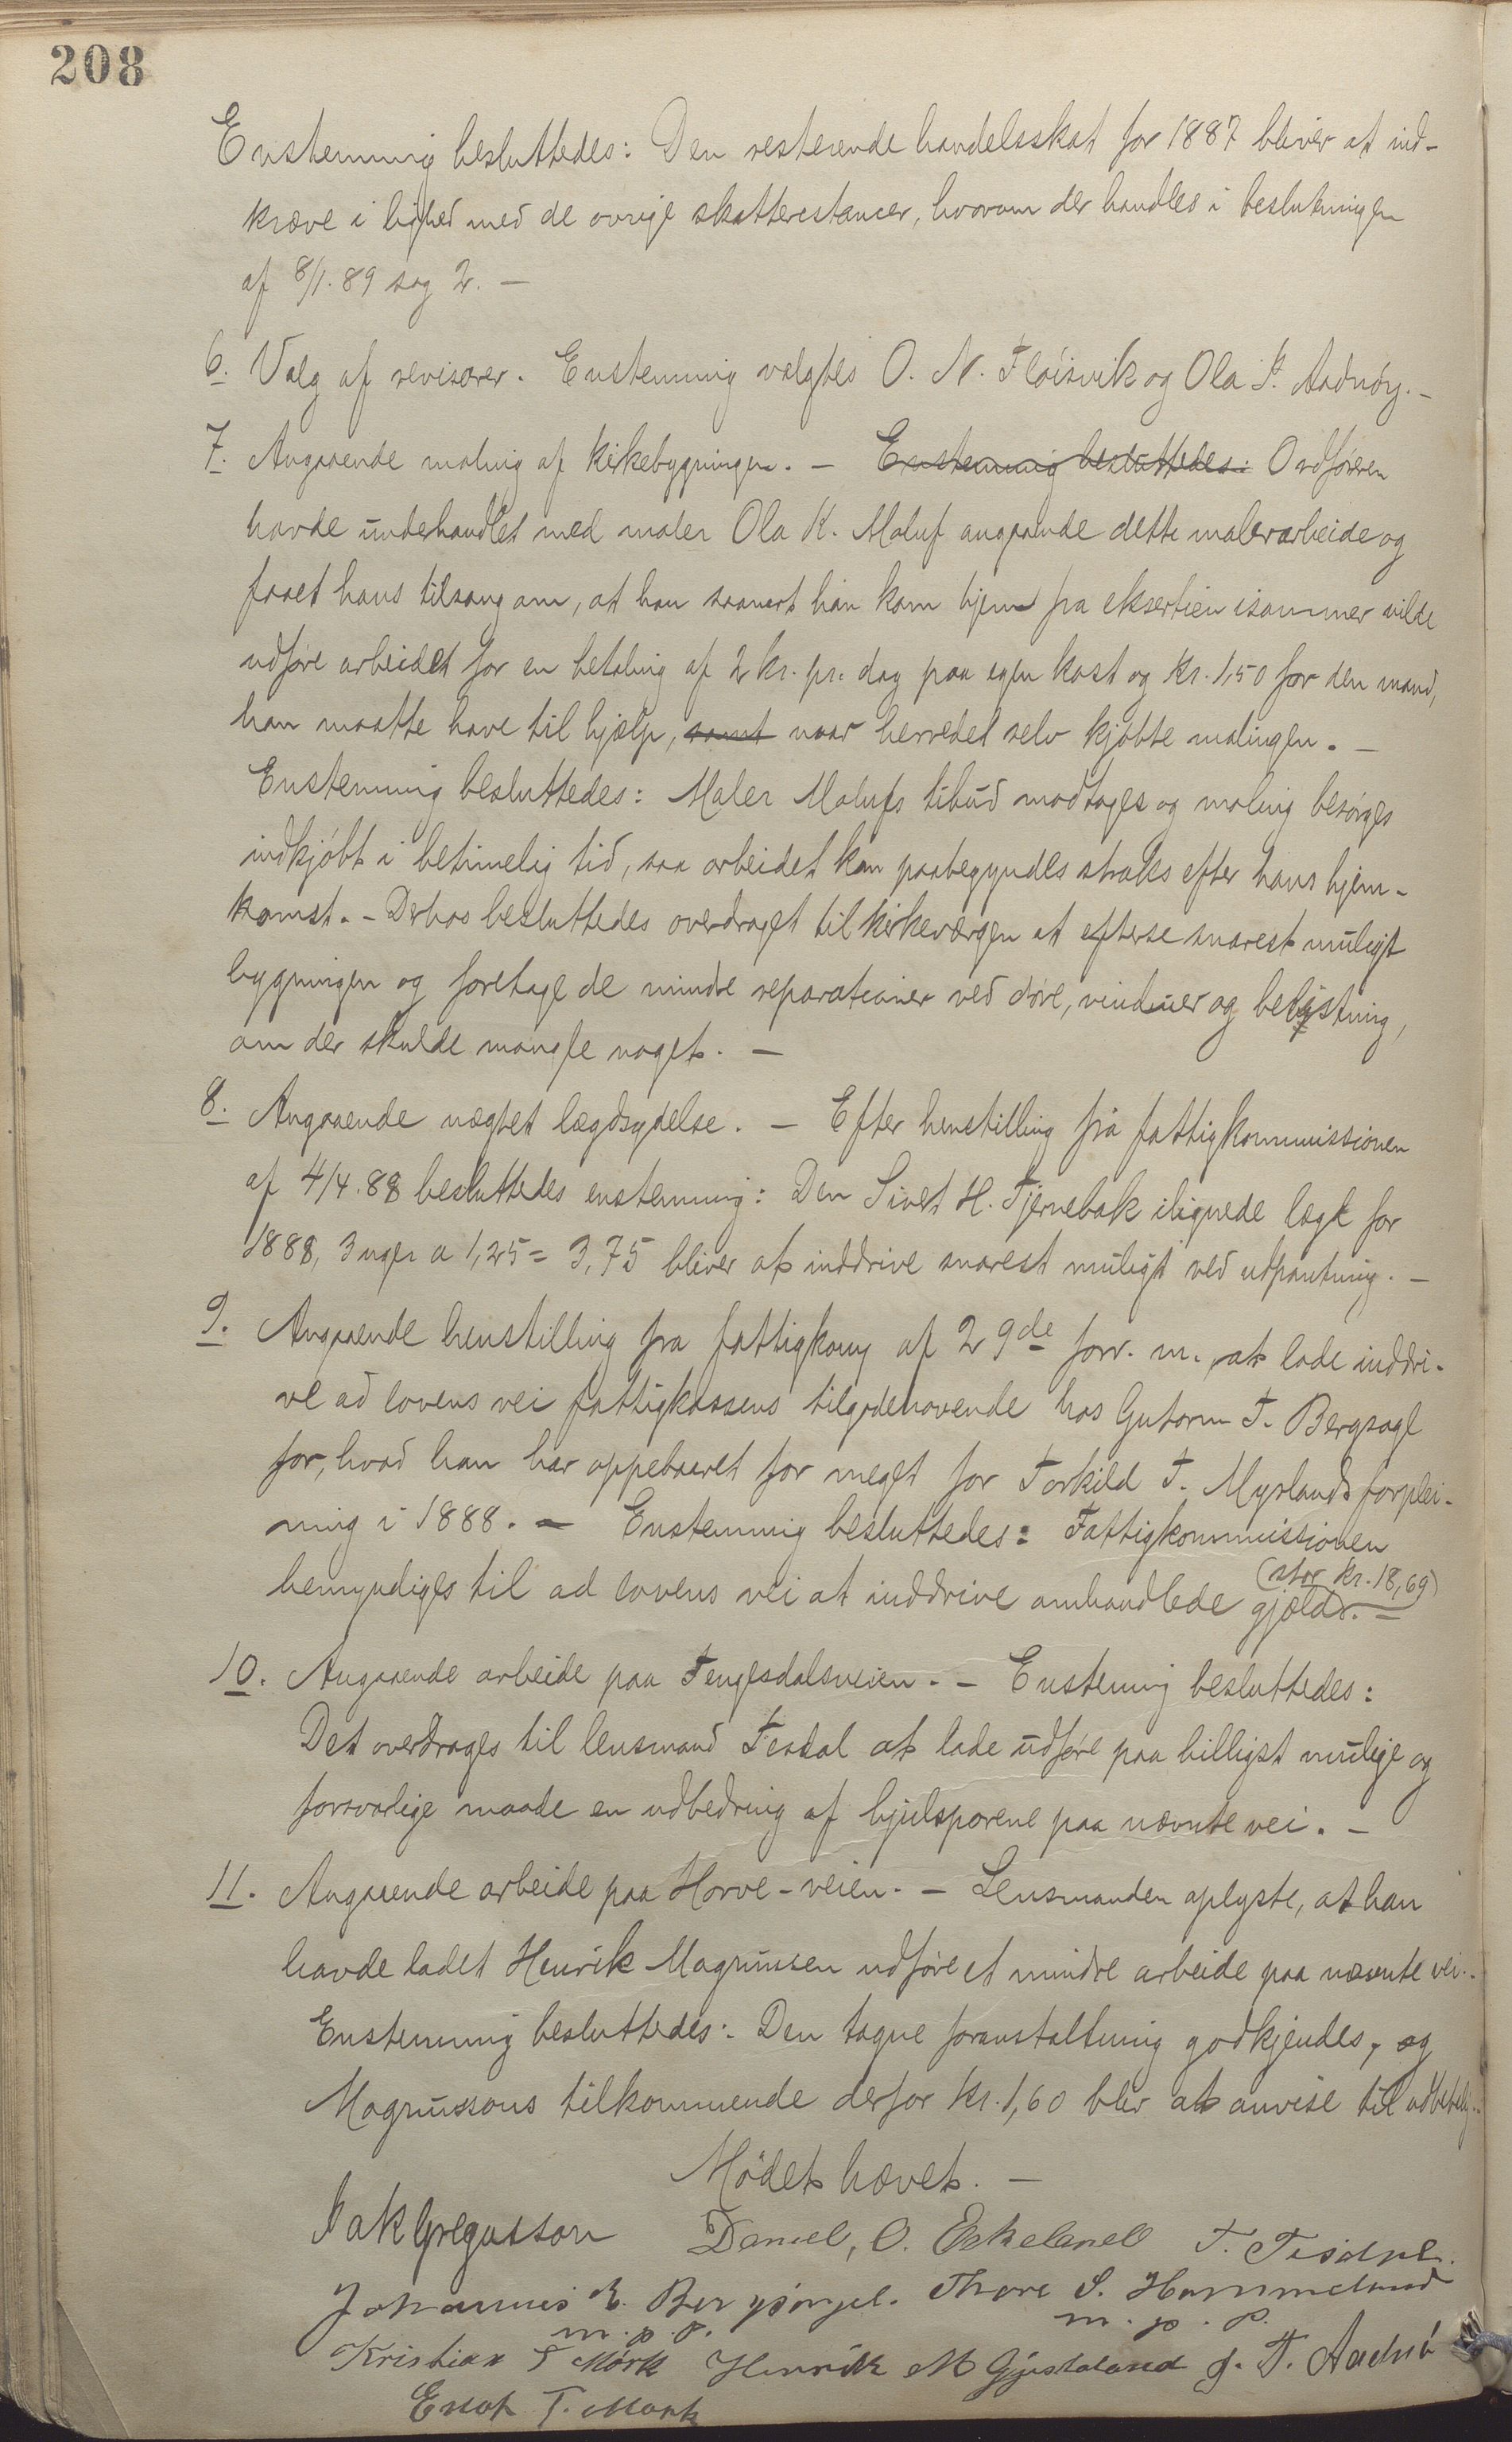 208
Enstemmig besluttedes: Den resterende handelsskat for 1887 bliver at ind-
kræve i lighed med de øvrige skatterestancer, hvorom der handles i beslutningen
af 8/1.89 sag 2. —
6. Valg af revisorer. Enstemmig valgtes O. N. Fløisvik og Ola P. Aadnøy. —
7. Angaaende maling af kirkebygningen. — Enstemmig besluttedes: Ordføreren
havde underhandlet med maler Ola K. Maluf angaaende dette malerarbeide og
faaet hans tilsagn om, at han saasnart han kom hjem fra eksersien isommer vilde
udføre arbeidet for en betaling af 2 kr. pr. dag paa egen kost og kr. 1,50 for den mand,
han maatte have til hjælp, samt naar herredet selv kjøbte malingen. —
Enstemmig besluttedes: Maler Malufs tibud modtages og maling besørges
indkjøbt i betimelig tid, saa arbeidet kan paabegyndes straks efter hans hjem-
komst. — Derhos besluttedes overdraget til kirkeværgen at efterse snarest muligt
bygningen og foretage de mindre reparationer ved døre, vinduer og belistning,
om der skulde mangle noget. —
8. Angaaende nægtet lægdsydelse. — Efter henstilling fra fattigkommissionen
af 4/4.88 besluttedes enstemmig: Den Sivert H. Tjernebak ilignede lægd for
1888, 3 uger a 1,25 = 3,75 bliver at inddrive snarest muligt ved udpantning. —
9. Angaaende henstilling fra fattigkomm af 29de forr. m. at lade inddri-
ve ad lovens vei fattigkassens tilgodehavende hos Gutorm T. Bergsagl
for, hvad han har oppebaaret for meget for Torkild T. Myrlands forplei-
ning i 1888. — Enstemmig besluttedes: Fattigkommissionen
bemyndiges til ad lovens vei at inddrive omhandlede gjæld (stor kr. 18,69). —
10. Angaaende arbeide paa Tengesdalsveien. — Enstemmig besluttedes:
Det overdrages til lensmand Tesdal at lade udføre paa billigst mulige og
forsvarlige maade en udbedring af hjulsporene paa nævnte vei. —
11. Angaaende arbeide paa Horve-veien. — Lensmanden oplyste, at han
havde ladet Henrik Magnussen udføre et mindre arbeide paa nævnte vei. -
Enstemmig besluttedes: Den tagne foranstaltning godkjendes, og
Magnussons tilkommende derfor kr. 1,60 blir at anvise til udbetaling.
Mødet hævet. —
Jak Gregusson Daniel, O. Eskeland T. Tisdal.
Johannes E. Bergsagel. Thore S. Hammeland
m. p. p. m. p. p.
Kristian T Mørk Henrik M Gjustaland J. T. Aadnø
Enok T. Mørk